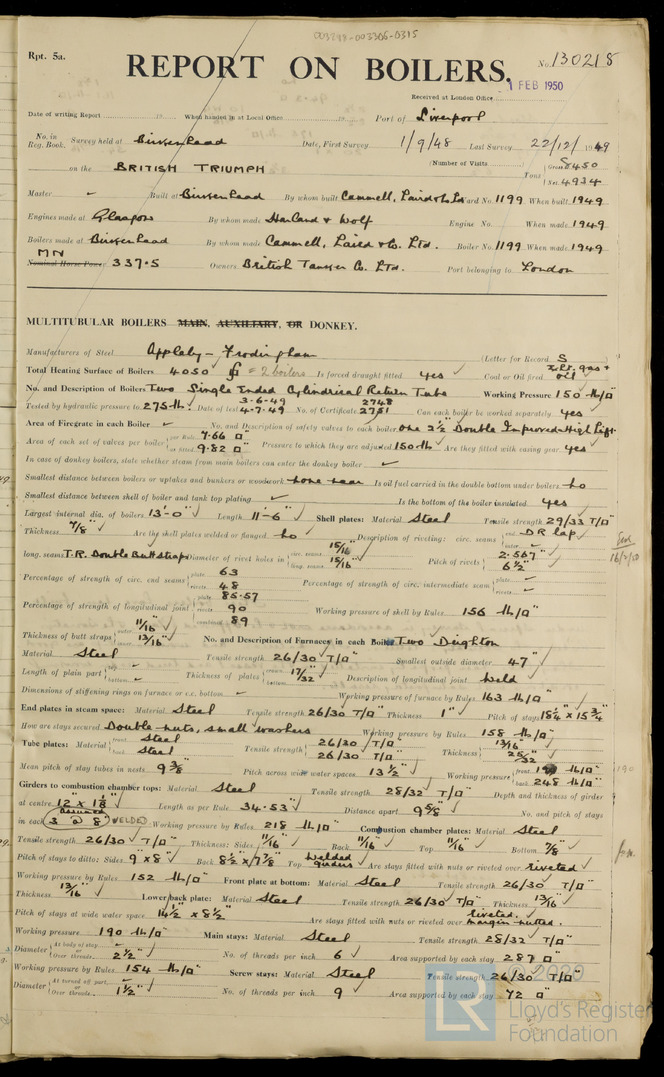 003298-003306-0315
Rpt. 5a.
REPORT ON BOILERS.
No. 130218
Received at London Office
1 FEB 1950
Date of writing Report 19 When handed in at Local Office 19 Port of Liverpool
No. in Reg. Book. Survey held at Birkenhead Date, First Survey 1/9/48 Last Survey 22/12/1949
(Number of Visits )
on the BRITISH TRIUMPH Tons Gross 8450 Net 4934
Master Built at Birkenhead By whom built Cammell, Laird & Co Ld Yard No. 1199 When built 1949
Engines made at Glasgow By whom made Harland & Wolf Engine No. When made 1949
Boilers made at Birkenhead By whom made Cammell, Laird & Co. Ltd. Boiler No. 1199 When made 1949
MN
Nominal Horse Power 337.5 Owners British Tanker Co. Ltd. Port belonging to London
MULTITUBULAR BOILERS MAIN, AUXILIARY, OR DONKEY.
Manufacturers of Steel Appleby-Frodingham (Letter for Record S
Total Heating Surface of Boilers 4050 = 2 boilers Is forced draught fitted yes Coal or Oil fired oil
No. and Description of Boilers Two Single Ended Cylindrical Return Tube Working Pressure 150 lb/□"
Tested by hydraulic pressure to 275 lb. Date of test 3-6-49 4-7-49 No. of Certificate 2748 2751 Can each boiler be worked separately yes
Area of Firegrate in each Boiler No. and Description of safety valves to each boiler one 2½" Double Improved High Lift
Area of each set of valves per boiler per Rule 7.66 □" as fitted 9.82 □" Pressure to which they are adjusted 150 lb Are they fitted with easing gear yes
In case of donkey boilers, state whether steam from main boilers can enter the donkey boiler
Smallest distance between boilers or uptakes and bunkers or woodwork none near Is oil fuel carried in the double bottom under boilers no
Smallest distance between shell of boiler and tank top plating Is the bottom of the boiler insulated yes
Largest internal dia. of boilers 13'-0" Length 11'-6" Shell plates: Material Steel Tensile strength 29/33 T/□"
Thickness 7/8" Are the shell plates welded or flanged no Description of riveting: circ. seams end DR lap inter.
long. seams T.R. Double Butt straps Diameter of rivet holes in circ. seams 15/16" long. seams 15/16" Pitch of rivets 2.567" 6½"
Percentage of strength of circ. end seams plate 63 rivets 48 Percentage of strength of circ. intermediate seam plate rivets
Percentage of strength of longitudinal joint plate 85.57 rivets 90 combined 89 Working pressure of shell by Rules 156 lb/□"
Thickness of butt straps outer 11/16" inner 13/16" No. and Description of Furnaces in each Boiler Two Deighton
Material Steel Tensile strength 26/30 T/□" Smallest outside diameter 47"
Length of plain part top bottom Thickness of plates crown bottom 17/32" Description of longitudinal joint weld
Dimensions of stiffening rings on furnace or c.c. bottom Working pressure of furnace by Rules 163 lb/□"
End plates in steam space: Material Steel Tensile strength 26/30 T/□" Thickness 1" Pitch of stays 18¼" x 15¾"
How are stays secured Double nuts, small washers Working pressure by Rules 158 lb/□"
Tube plates: Material front Steel back Steel Tensile strength 26/30 T/□" 26/30 T/□" Thickness 13/16" 25/32"
Mean pitch of stay tubes in nests 9 3/8 Pitch across wide water spaces 13½" Working pressure front 190 lb/□" back 248 lb/□"
190
Girders to combustion chamber tops: Material Steel Tensile strength 28/32 T/□" Depth and thickness of girder
at centre 12" x 1 1/8" Length as per Rule 34.53" Distance apart 9 5/8" No. and pitch of stays
in each 3 @ 8" WELDED Working pressure by Rules 218 lb/□" Combustion chamber plates: Material Steel
Tensile strength 26/30 T/□" Thickness: Sides 11/16" Back 11/16" Top 11/16" Bottom 7/8"
Pitch of stays to ditto: Sides 9" x 8" Back 8½" x 7 7/8" Top welded girders Are stays fitted with nuts or riveted over riveted
Working pressure by Rules 152 lb/□" Front plate at bottom: Material Steel Tensile strength 26/30 T/□"
Thickness 13/16" Lower back plate: Material Steel Tensile strength 26/30 T/□" Thickness 13/16"
Pitch of stays at wide water space 14½" x 8½" Are stays fitted with nuts or riveted over riveted. margin nutted.
Working pressure 190 lb/□" Main stays: Material Steel Tensile strength 28/32 T/□"
Diameter At body of stay or Over threads 2½" No. of threads per inch 6 Area supported by each stay 287 □"
Working pressure by Rules 154 lb/□" Screw stays: Material Steel Tensile strength 26/30 T/□"
Diameter At turned off part or Over threads 1½" No. of threads per inch 9 Area supported by each stay 72 □"
© 2020
LR
Lloyd's Register
Foundation